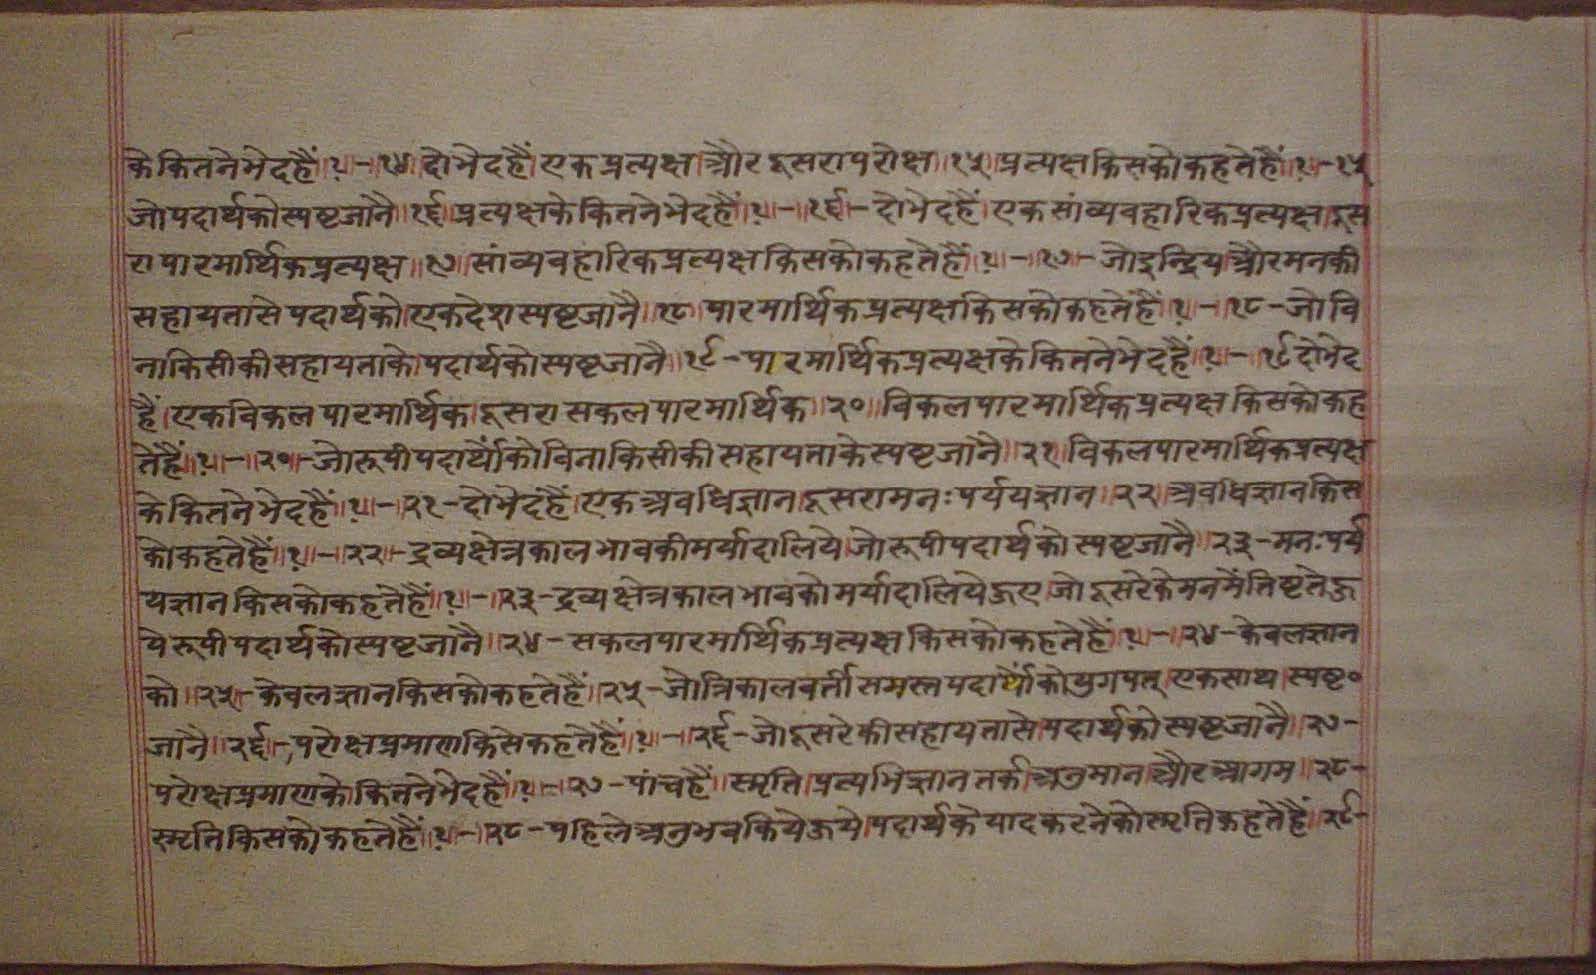 के कितने भेद हैं।?।-।१४। दो भेद हैं। एक प्रत्यक्ष। और दूसरा परोक्ष॥१५॥ प्रत्यक्ष किसको कहते हैं।?।-१५
जो पदार्थ को स्पष्ट जानै॥१६॥ प्रत्यक्ष के कितने भेद हैं।?।-।१६।- दो भेद हैं। एक सांव्यवहारिक प्रत्यक्ष। दूस
रा पारमार्थिक प्रत्यक्ष॥१७॥ सांव्यवहारिक प्रत्यक्ष किसको कहते हैं।?।-।१७।- जो इन्द्रिय और मन की
सहायता से पदार्थ को। एकदेश स्पष्ट जानै॥१८॥ पारमार्थिक प्रत्यक्ष किसको कहते हैं।?।-।१८- जो वि
ना किसी की सहायता के। पदार्थ को स्पष्ट जानै॥१९- पारमार्थिक प्रत्यक्ष के कितने भेद हैं।?।-।१९ दो भेद
हैं। एक विकल पारमार्थिक। दूसरा सकल पारमार्थिक।२०॥ विकल पारमार्थिक प्रत्यक्ष किसको कह
ते हैं।?।-।२०- जो रूपी पदार्थों को विना किसी की सहायता के स्पष्ट जानै॥२१॥ विकल पारमार्थिक प्रत्यक्ष
के कितने भेद हैं।?।-।२१- दो भेद हैं। एक अवधिज्ञान। दूसरा मनःपर्ययज्ञान॥२२॥ अवधिज्ञान किस
को कहते हैं।?।-।२२- द्रव्य क्षेत्र काल भाव की मर्यादा लिये। जो रूपी पदार्थ को स्पष्ट जानै॥२३- मनःपर्य
यज्ञान किसको कहते हैं।?।-।२३- द्रव्य क्षेत्र काल भाव को मर्यादा लिये हुए। जो दूसरे के मन में तिष्टते हु
ये रूपी पदार्थ को स्पष्ट जानै॥२४- सकल पारमार्थिक प्रत्यक्ष किसको कहते हैं।?।-।२४- केवलज्ञान
को॥२५- केवलज्ञान किसको कहते हैं॥२५- जो त्रिकालवर्ती समस्त पदार्थों को युगपत्। एक साथ। स्पष्ट०
जानै॥२६- परोक्ष प्रमाण किसे कहते हैं।?।-।२६- जो दूसरे की सहायता से। पदार्थ को स्पष्ट जानै॥२७-
परोक्ष प्रमाण के कितने भेद हैं।?।-।२७- पांच हैं॥ स्मृति। प्रत्यभिज्ञान तर्क। अनुमान। और आगम॥२८-
स्मृति किसको कहते हैं।?।-।२८- पहिले अनुभव किये हुये। पदार्थ के याद करने को स्मृति कहते हैं॥२९-